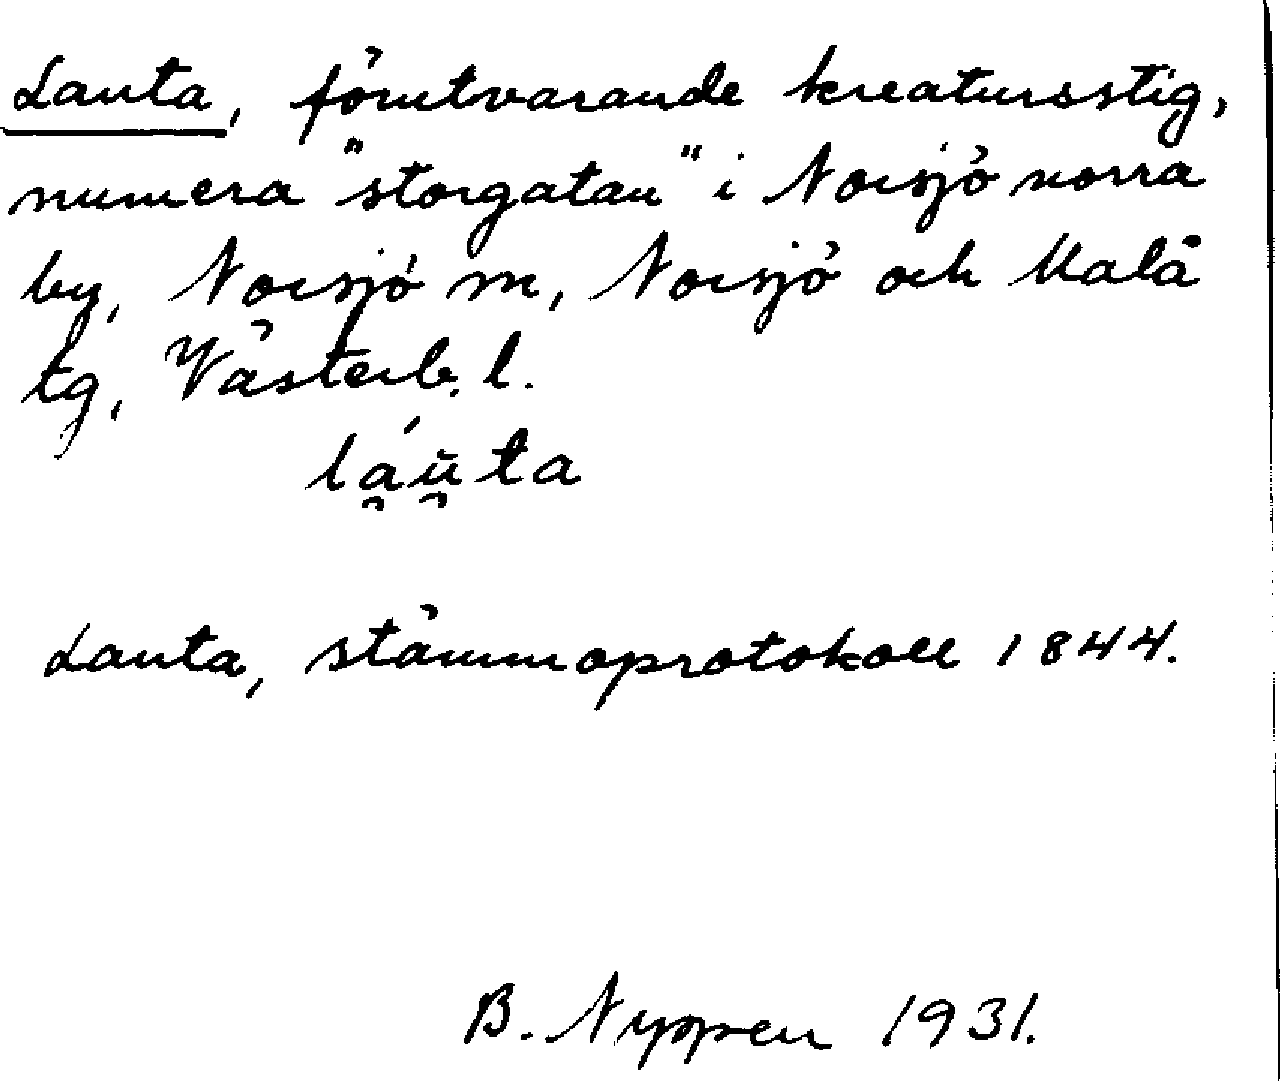 Lauta, förutvarande kreatursstig,
numera "storgatan" i Norsjö norra
by, Norsjö sn, Norsjö och Malå
tg, Västerb. l.
lau̯ta
Lauta, stämmoprotokoll 1844.
B. Nyppen 1931.